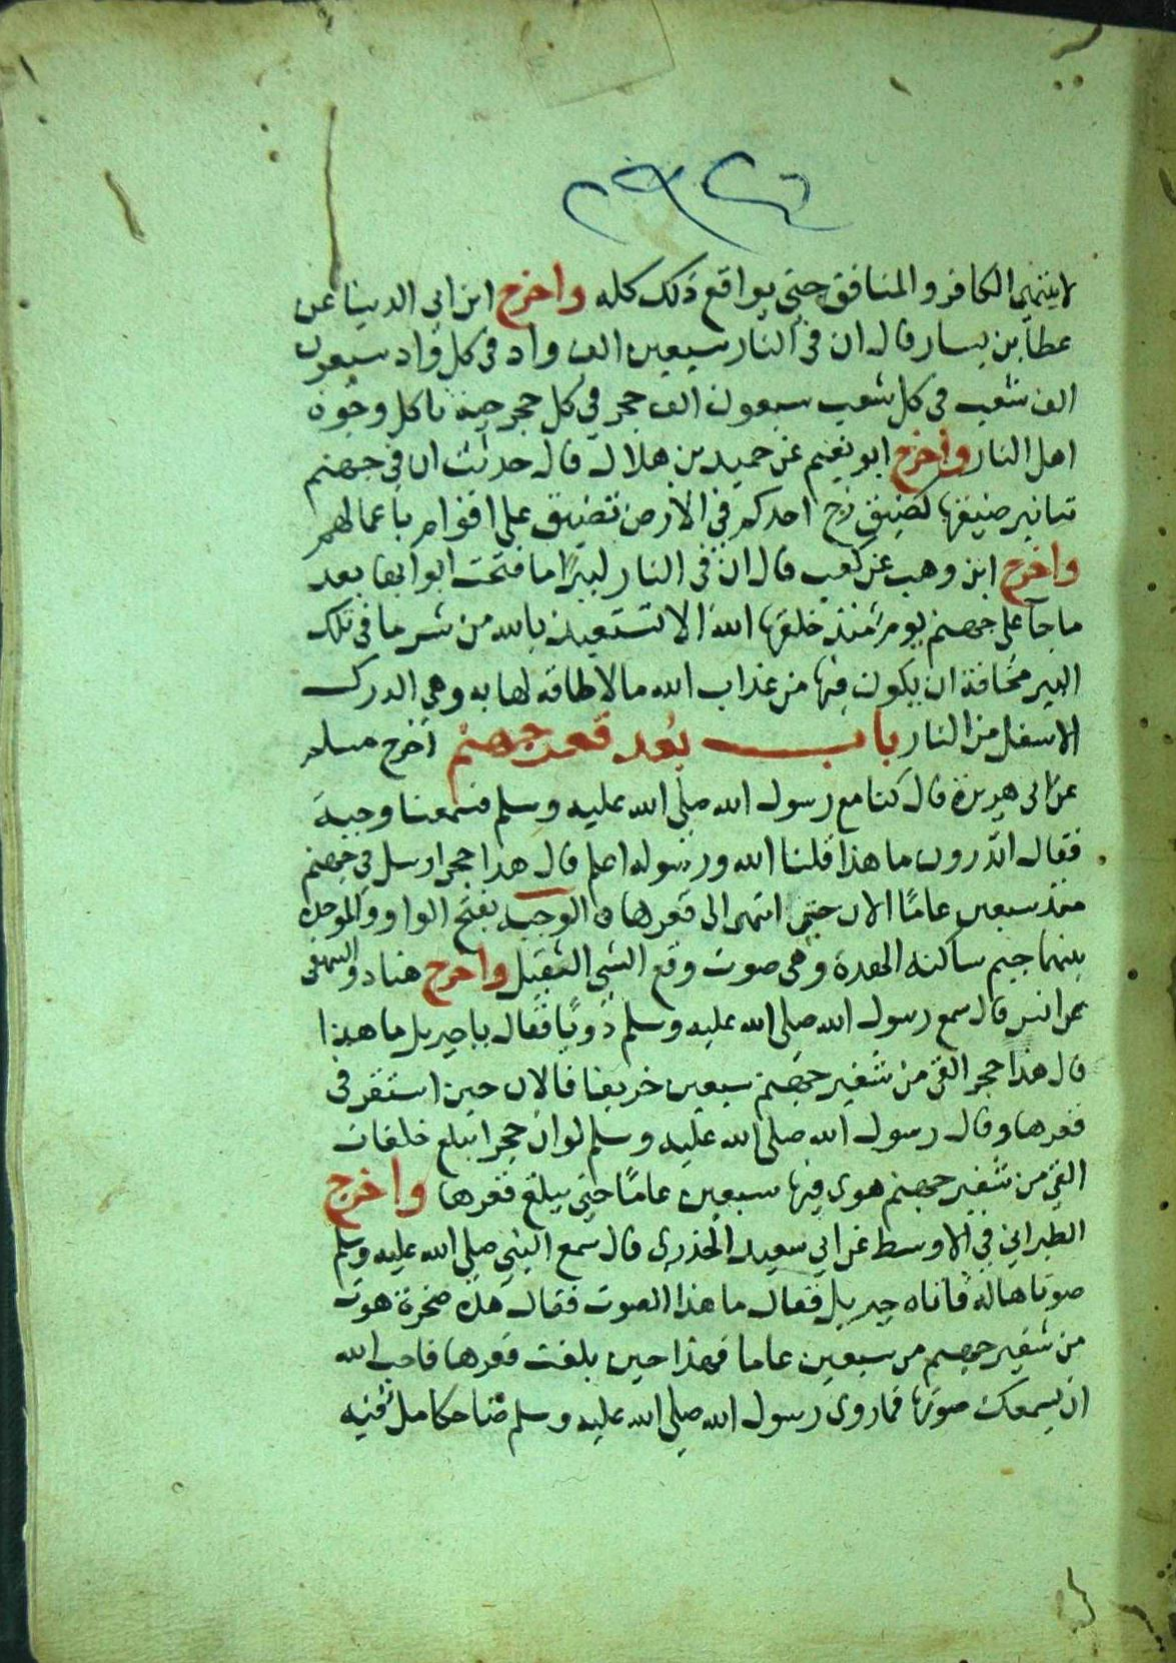 لا ينتهي الكافر والمنافق حتى يواقع ذلك كله واخرج ابن ابي الدنيا عن
عطا بن يسار قال ان في النار سبعين الف واد في كل واد سبعون
الف شعب في كل شعب سبعون الف حجر في كل حجر حية تاكل وجوه
اهل النار واخرج ابو نعيم عن حميد بن هلال قال حدثت ان في جهنم
تنانير ضيقها كضيق زج احدكم في الارض تضيق على اقوام باعمالهم
واخرج ابن وهب عن كعب قال ان في النار لبيرا ما فتحت ابوابها بعد
ما جا على جهنم يوم منذ خلقها الله الا تستعيذ بالله من شر ما في تلك
البير مخافة ان يكون فيها من عذاب الله ما لا طاقه لها به وهي الدرك
الاسفل من النار باب بعد قعر جهنم اخرج مسلم
عن ابي هريرة قال كنا مع رسول الله صلى الله عليه وسلم فسمعنا وجبة
فقال اتدرون ما هذا قلنا الله ورسوله اعلم قال هذا حجر ارسل في جهنم
منذ سبعين عامًا الان حتى انتهى الى قعرها ه الوجبة بفتح الواو والموحدة
بينهما جيم ساكنه الهدة وهي صوت وقع الشي الثقيل واخرج هناد والبيهقي
عن انس قال سمع رسول الله صلى الله عليه وسلم دويًا فقال يا جبريل ما هذا
قال هذا حجر القي من شفير جهنم سبعين خريفا فالان حين استقر في
قعرها وقال رسول الله صلى الله عليه وسلم لو ان حجرا مبلغ خلفات
القي من شفير جهنم هوى فيها سبعين عامًا حتى يبلغ قعرها واخرج
الطبراني في الاوسط عن ابي سعيد الخدري قال سمع النبي صلى الله عليه وسلم
صوتا هاله فاتاه جبريل فقال ما هذا الصوت فقال هذه صخرة هوت
من شفير جهنم من سبعين عاما فهذا حين بلغت قعرها فاحب الله
ان يسمعك صوتها فما روي رسول الله صلى الله عليه وسلم ضاحكا مل فيه